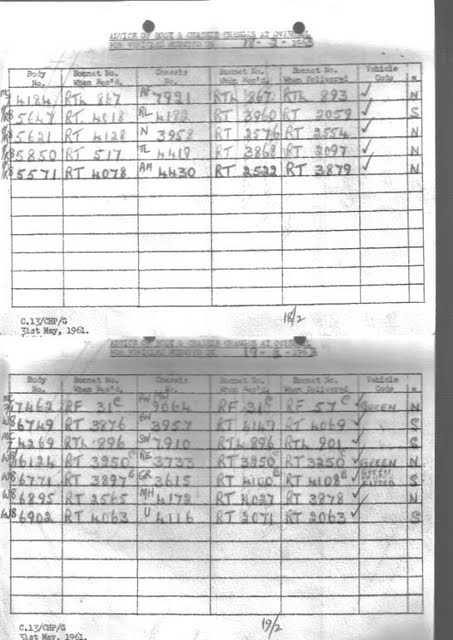 ADVICE OF BODY & CHASSIS CHANGES AT OVERHAUL
FOR VEHICLES 18-2-1963
Body No. Bonnet No. When Rec'd. Chassis No. Bonnet No. Bonnet No. When Delivered Vehicle Code *
4184 RTL 867 7921 RTL 867 RTL 893 ✓ N
5647 RT 4018 RL 4182 RT 3960 RT 2059 ✓ S
5621 RT 4128 N 3958 RT 2576 RT 2554 ✓ N
5850 RT 517 TL 4419 RT 3868 RT 2097 ✓ N
5571 RT 4078 AM 4430 RT 2522 RT 3879 ✓ N
C.13/CHP/G
31st May, 1961.
18/2
ADVICE OF BODY & CHASSIS CHANGES AT OVERHAUL
FOR VEHICLES 19-2-1963
Body No. Bonnet No. When Rec'd. Chassis No. Bonnet No. Bonnet No. When Delivered Vehicle Code *
7462 RF 31C 9064 RF 31C RF 57C ✓ GREEN N
W8 6749 RT 3876 3957 RT 4147 RT 4069 ✓ S
4269 RTL 896 SW 7910 RTL 896 RTL 901 ✓ S
W8 6124 RT 3250 RE 3733 RT 3250 RT 3250 ✓ GREEN N
W8 6771 RT 3897 GR 3615 RT 4100 RT 4108 ✓ GREEN S
W8 6895 RT 2565 MH 4172 RT 4027 RT 3878 ✓ N
W8 6902 RT 4063 U 4116 RT 2071 RT 2063 ✓ S
C.13/CHP/G
31st May, 1961.
19/2